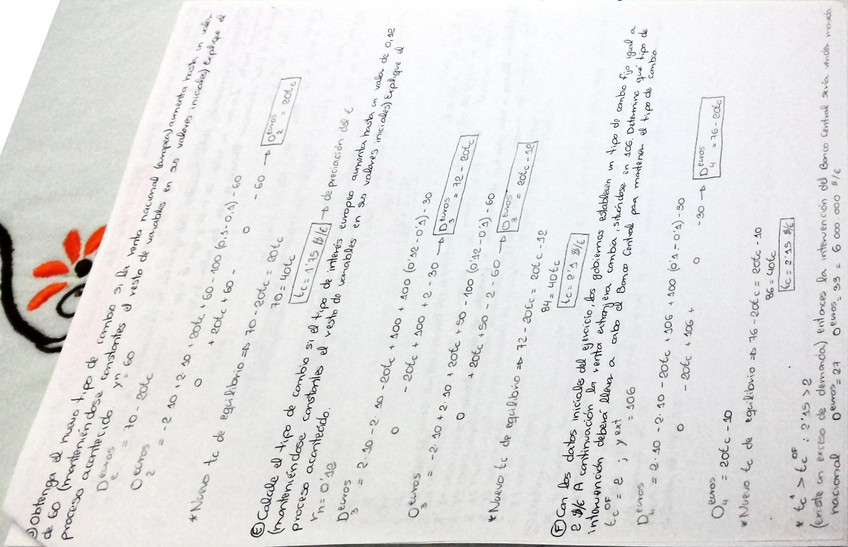 Obtenga el nuevo tipo de cambio si la renta nacional (europea) aumenta hasta un valor
de 60 (manteniéndose constantes el resto de variables en sus valores iniciales) Explique el
proceso acontecido. yn = 60
D euros 2 = 70 - 20tc
O euros 2 = -2·10 + 2·10 + 20tc + 60 - 100 (0,1-0,1) - 60
0 + 20tc + 60 - 0 - 60 → O euros 2 = 20tc
* Nuevo tc de equilibrio ⇒ 70 - 20tc = 20tc
70 = 40tc
tc = 1'75 $/€ → depreciación del €
E) Calcule el tipo de cambio si el tipo de interés europeo aumenta hasta un valor de 0,12
(manteniéndose constantes el resto de variables en sus valores iniciales) Explique el
proceso acontecido.
rn = 0'12
D euros 3 = 2·10 - 2·10 - 20tc + 100 + 100 (0'12 - 0'1) - 30
0 - 20tc + 100 + 2 - 30 → D euros 3 = 72 - 20tc
O euros 3 = -2·10 + 2·10 + 20tc + 50 - 100 (0'12 - 0'1) - 60
0 + 20tc + 50 - 2 - 60 → O euros 3 = 20tc - 12
* Nuevo tc de equilibrio ⇒ 72 - 20tc = 20tc - 12
84 = 40tc
tc = 2'1 $/€
F) Con los datos iniciales del ejercicio, los gobiernos establecen un tipo de cambio fijo igual a
2 $/€ A continuación la renta extranjera cambia, situándose en 106. Determine qué tipo de
intervención deberá llevar a cabo el Banco Central para mantener el tipo de cambio
tc OF = 2 ; y ext = 106
D euros 4 = 2·10 - 2·10 - 20tc + 106 + 100 (0'1 - 0'1) - 30
0 - 20tc + 106 + 0 - 30 → D euros 4 = 76 - 20tc
O euros 4 = 20tc - 10
* Nuevo tc de equilibrio ⇒ 76 - 20tc = 20tc - 10
86 = 40tc
tc = 2'15 $/€
* tc' > tc OF : 2'15 > 2
(existe un exceso de demanda) entonces la intervención del Banco Central sería vender moneda
nacional O euros = 27 D euros = 33 = 6 000 000 $/€